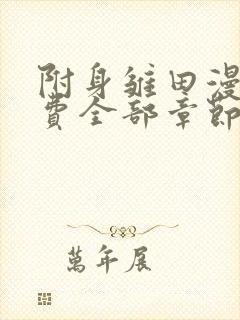 附身雏田漫
费全部章節
萬年展